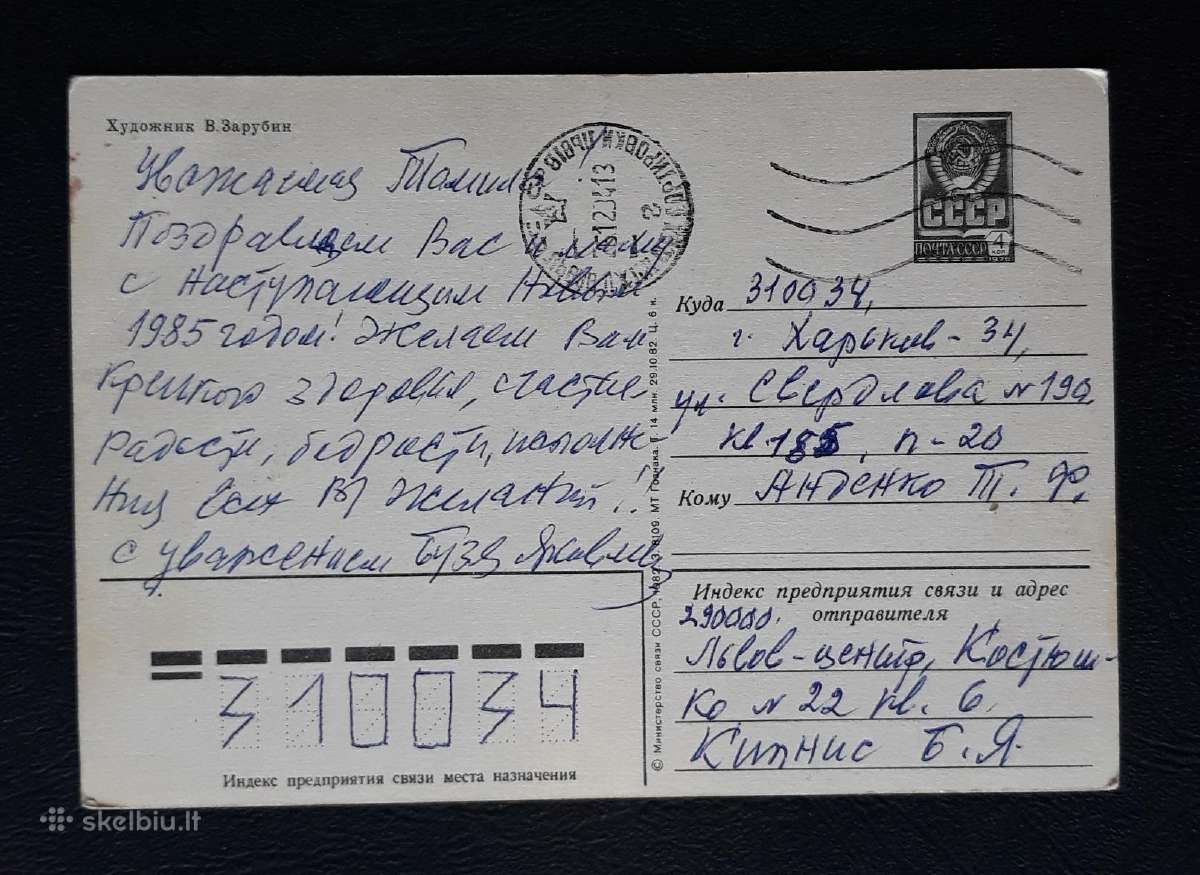 Художник В.Зарубин
Уважаемая Томила
Поздравляем Вас и маму
с наступающим Новым
1985 годом! Желаем Вам
крепкого здоровья, счастья
радости, бодрости, исполне-
ния всех желаний!!
с уважением Бузя Яковлев
ПОЧТА СССР
СССР
4 коп
1976
Куда 310034,
г. Харьков-34,
ул. Свердлова №190
кв 185, п-20
Кому Анденко Т. Ф.
Индекс предприятия связи и адрес
отправителя
290000.
Львов-центр, Костюш-
ко №22 кв. 6.
Кипнис Б.Я.
310034
Индекс предприятия связи места назначения
© Министерство связи СССР, 1982. МТ Гознака. 14 млн. 29.10.82. Ц. 6 к.
skelbiu.lt